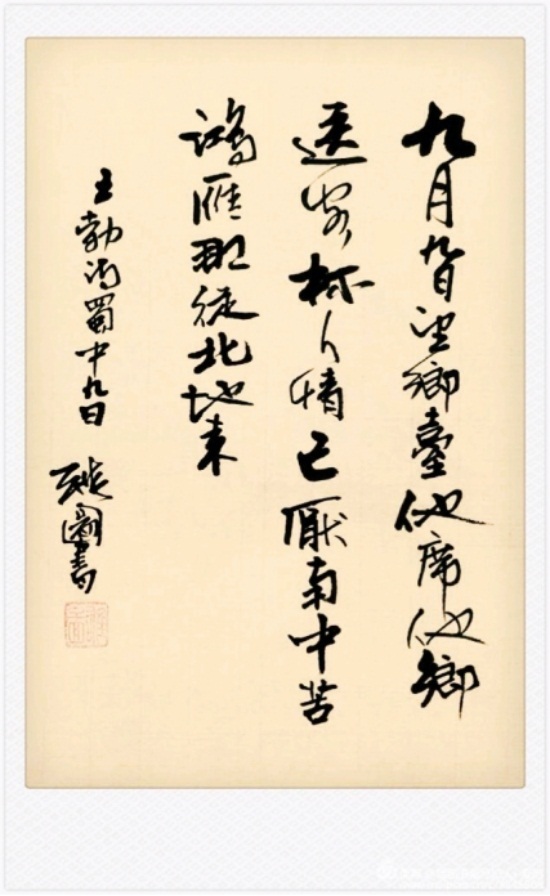 九月九日望鄉臺他席他鄉
送客杯人情已厭南中苦
鴻雁那從北地來
王勃詩蜀中九日
圖書